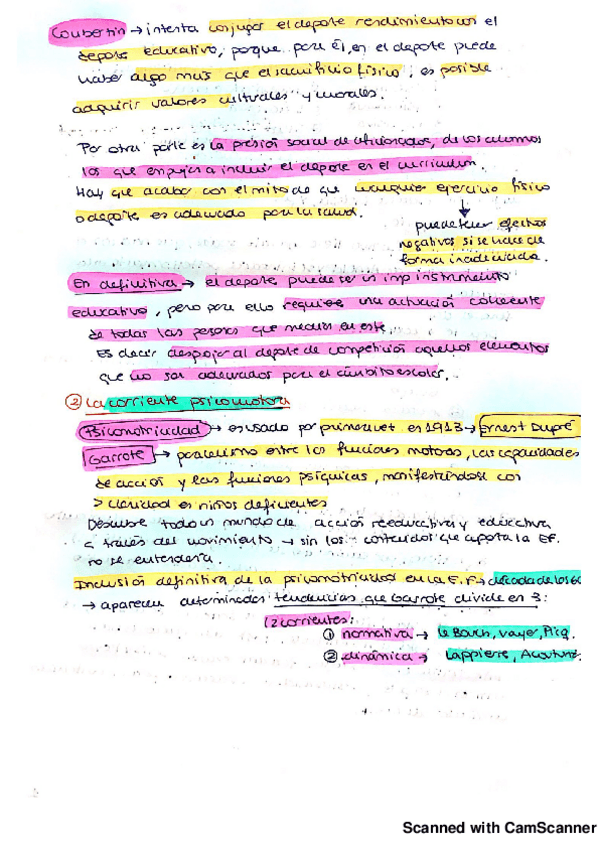 Coubertin → intenta conjugar el deporte rendimiento con el
deporte educativo, porque para él, en el deporte puede
haber algo más que el sacrificio físico; es posible
adquirir valores culturales y morales.
Por otra parte es la presión social de aficionados, de los alumnos
los que empujan a incluir el deporte en el curriculum.
Hay que acabar con el mito de que cualquier ejercicio físico
o deporte es adecuado para la salud.
puede tener efectos
negativos si se hace de
forma inadecuada.
En definitiva → el deporte puede ser un imp instrumento
educativo, pero para ello requiere una actuación coherente
de todas las personas que median en este.
Es decir despojar al deporte de competición aquellos elementos
que no son adecuados para el ámbito escolar.
② La corriente psicomotora
Psicomotricidad → es usado por primera vez en 1913 → Ernest Dupré
Garrote → paralelismo entre las funciones motoras, las capacidades
de acción y las funciones psíquicas, manifestándose con
> claridad en niños deficientes
Descubre todo un mundo de acción reeducativa y educativa
a través del movimiento → sin los contenidos que aporta la EF.
no se entendería.
Inclusión definitiva de la psicomotricidad en la E.F → década de los 60
→ aparecen determinadas tendencias que Garrote divide en 3:
(2 corrientes:
① normativa → Le Bouch, Vayer, Picq.
② dinámica → Lappierre, Acouturier.
Scanned with CamScanner